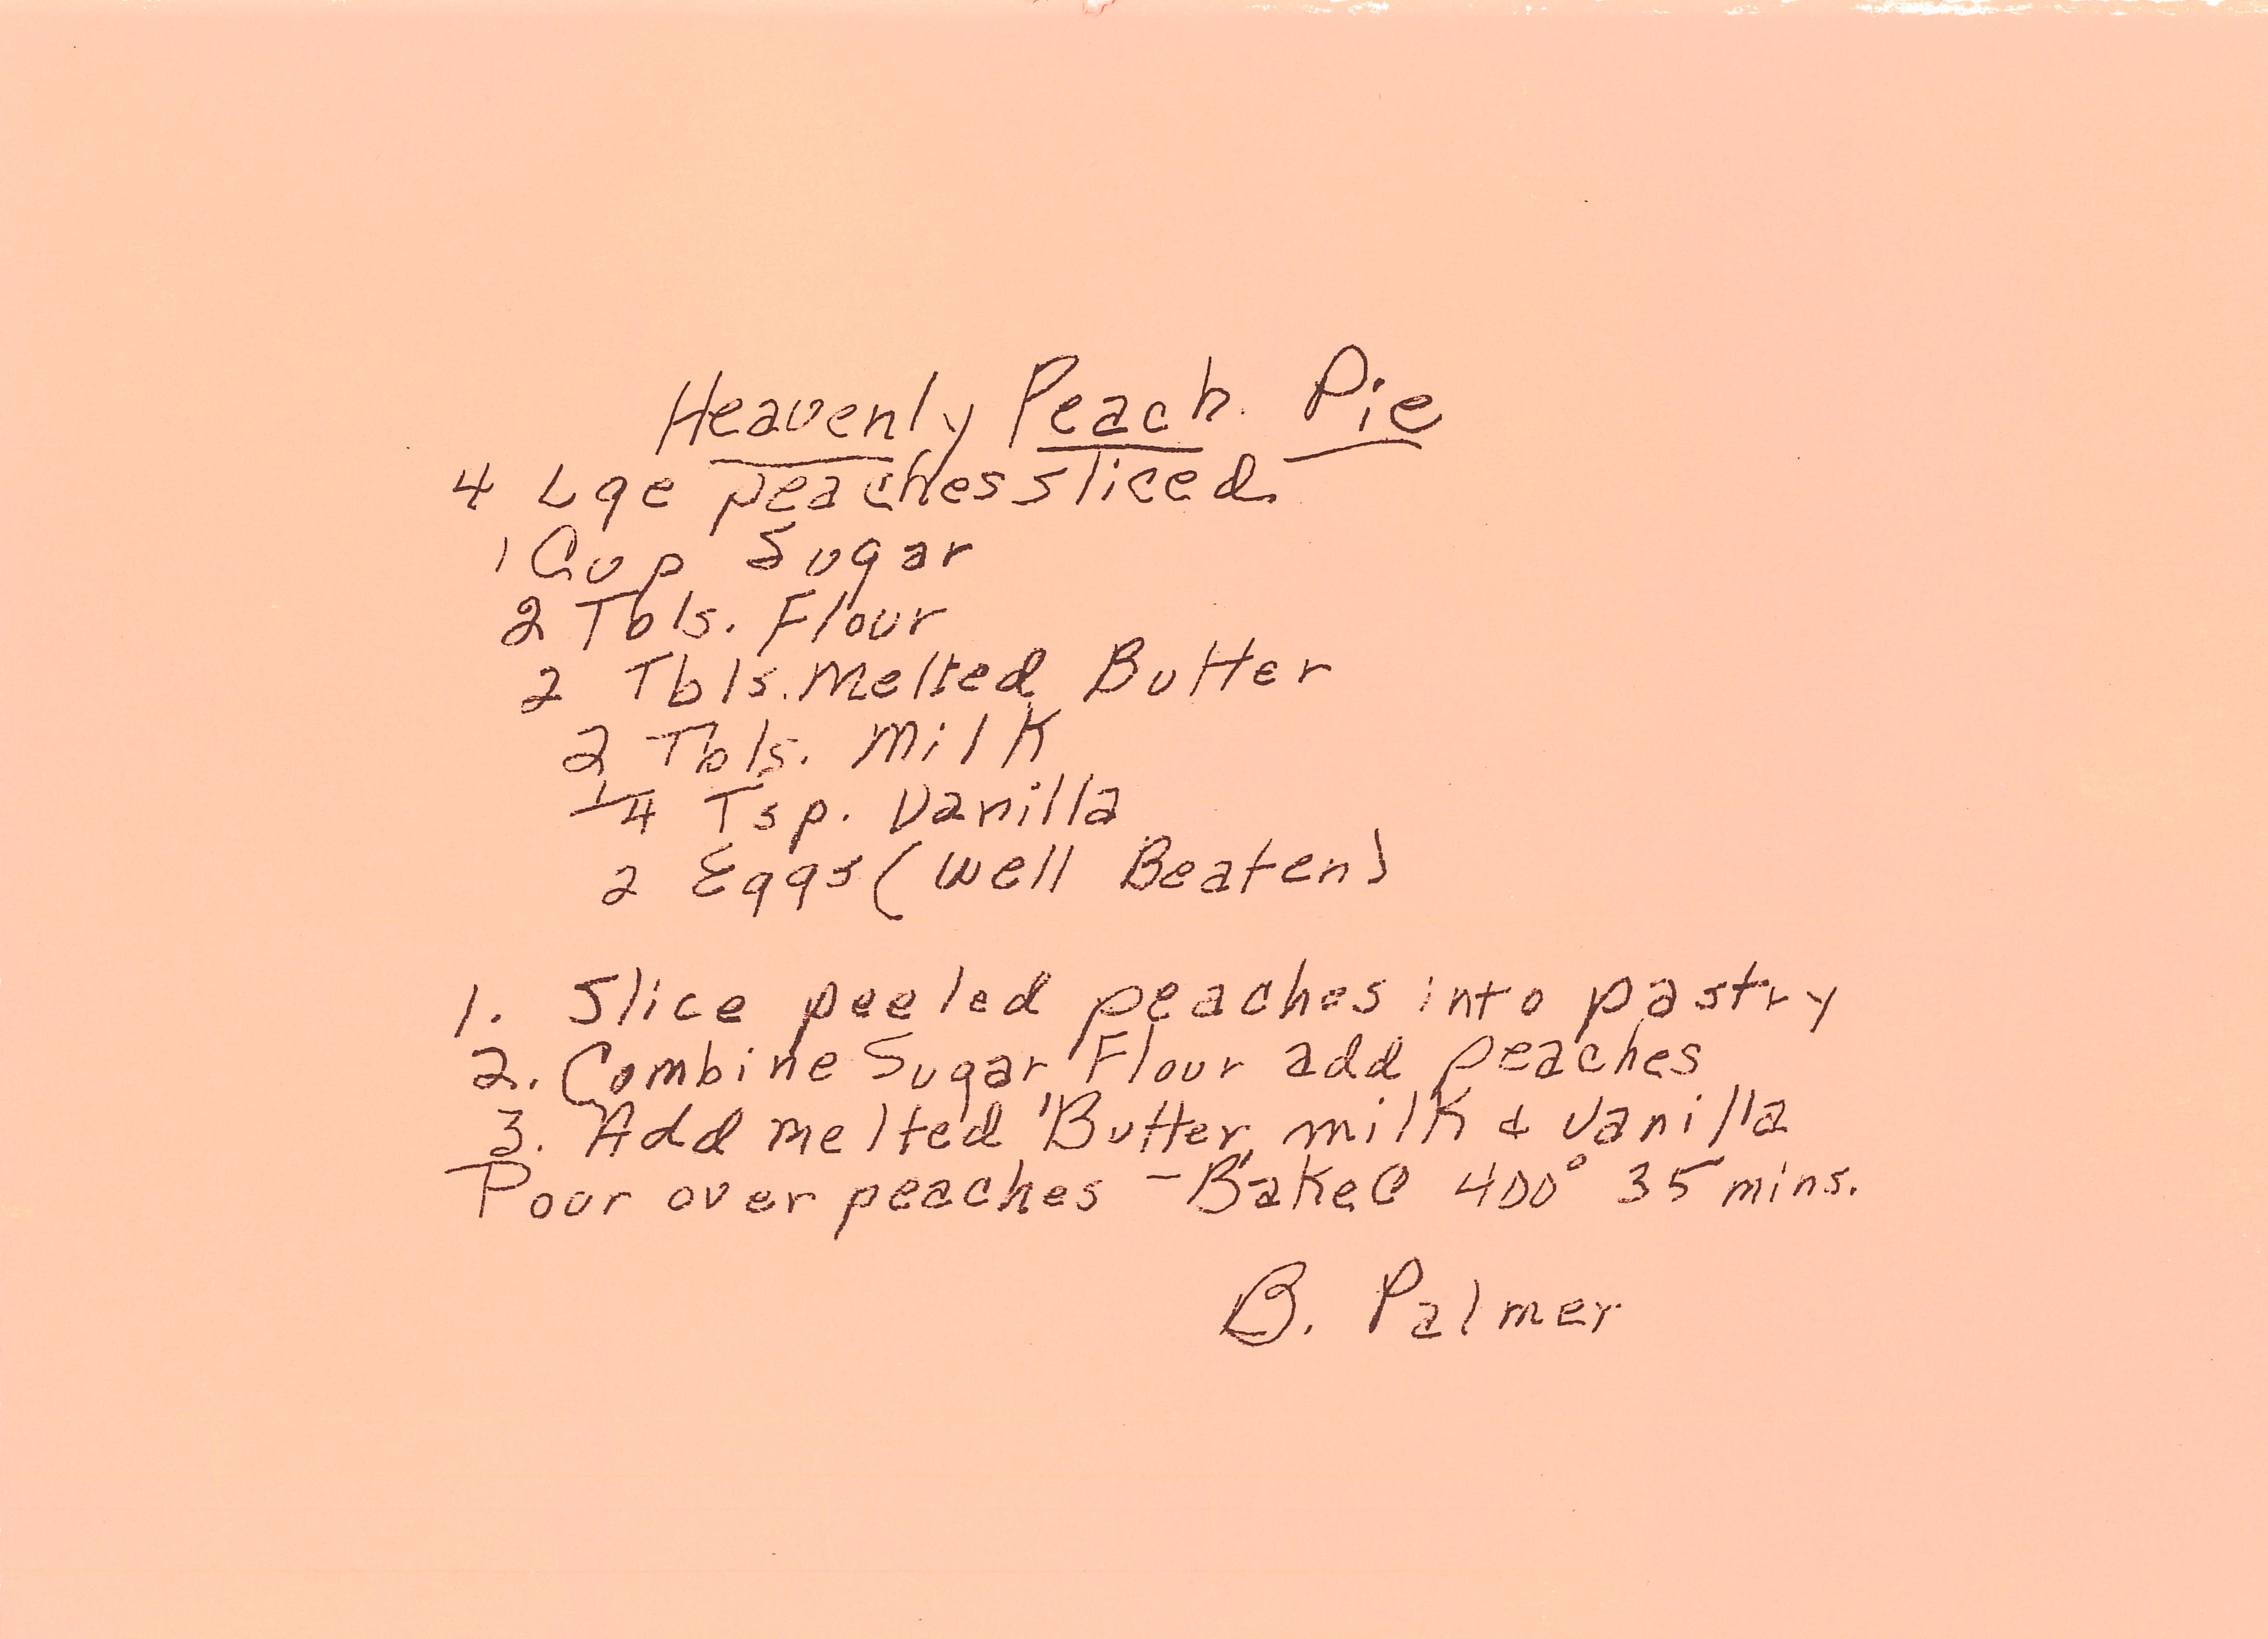 Heavenly Peach Pie
4 Lge peaches sliced
1 Cup Sugar
2 Tbls. Flour
2 Tbls. Melted Butter
2 Tbls. Milk
1/4 Tsp. Vanilla
2 Eggs (Well Beaten)
1. Slice peeled peaches into pastry
2. Combine Sugar, Flour add peaches
3. Add melted Butter, milk & Vanilla
Pour over peaches - Bake @ 400° 35 mins.
B. Palmer